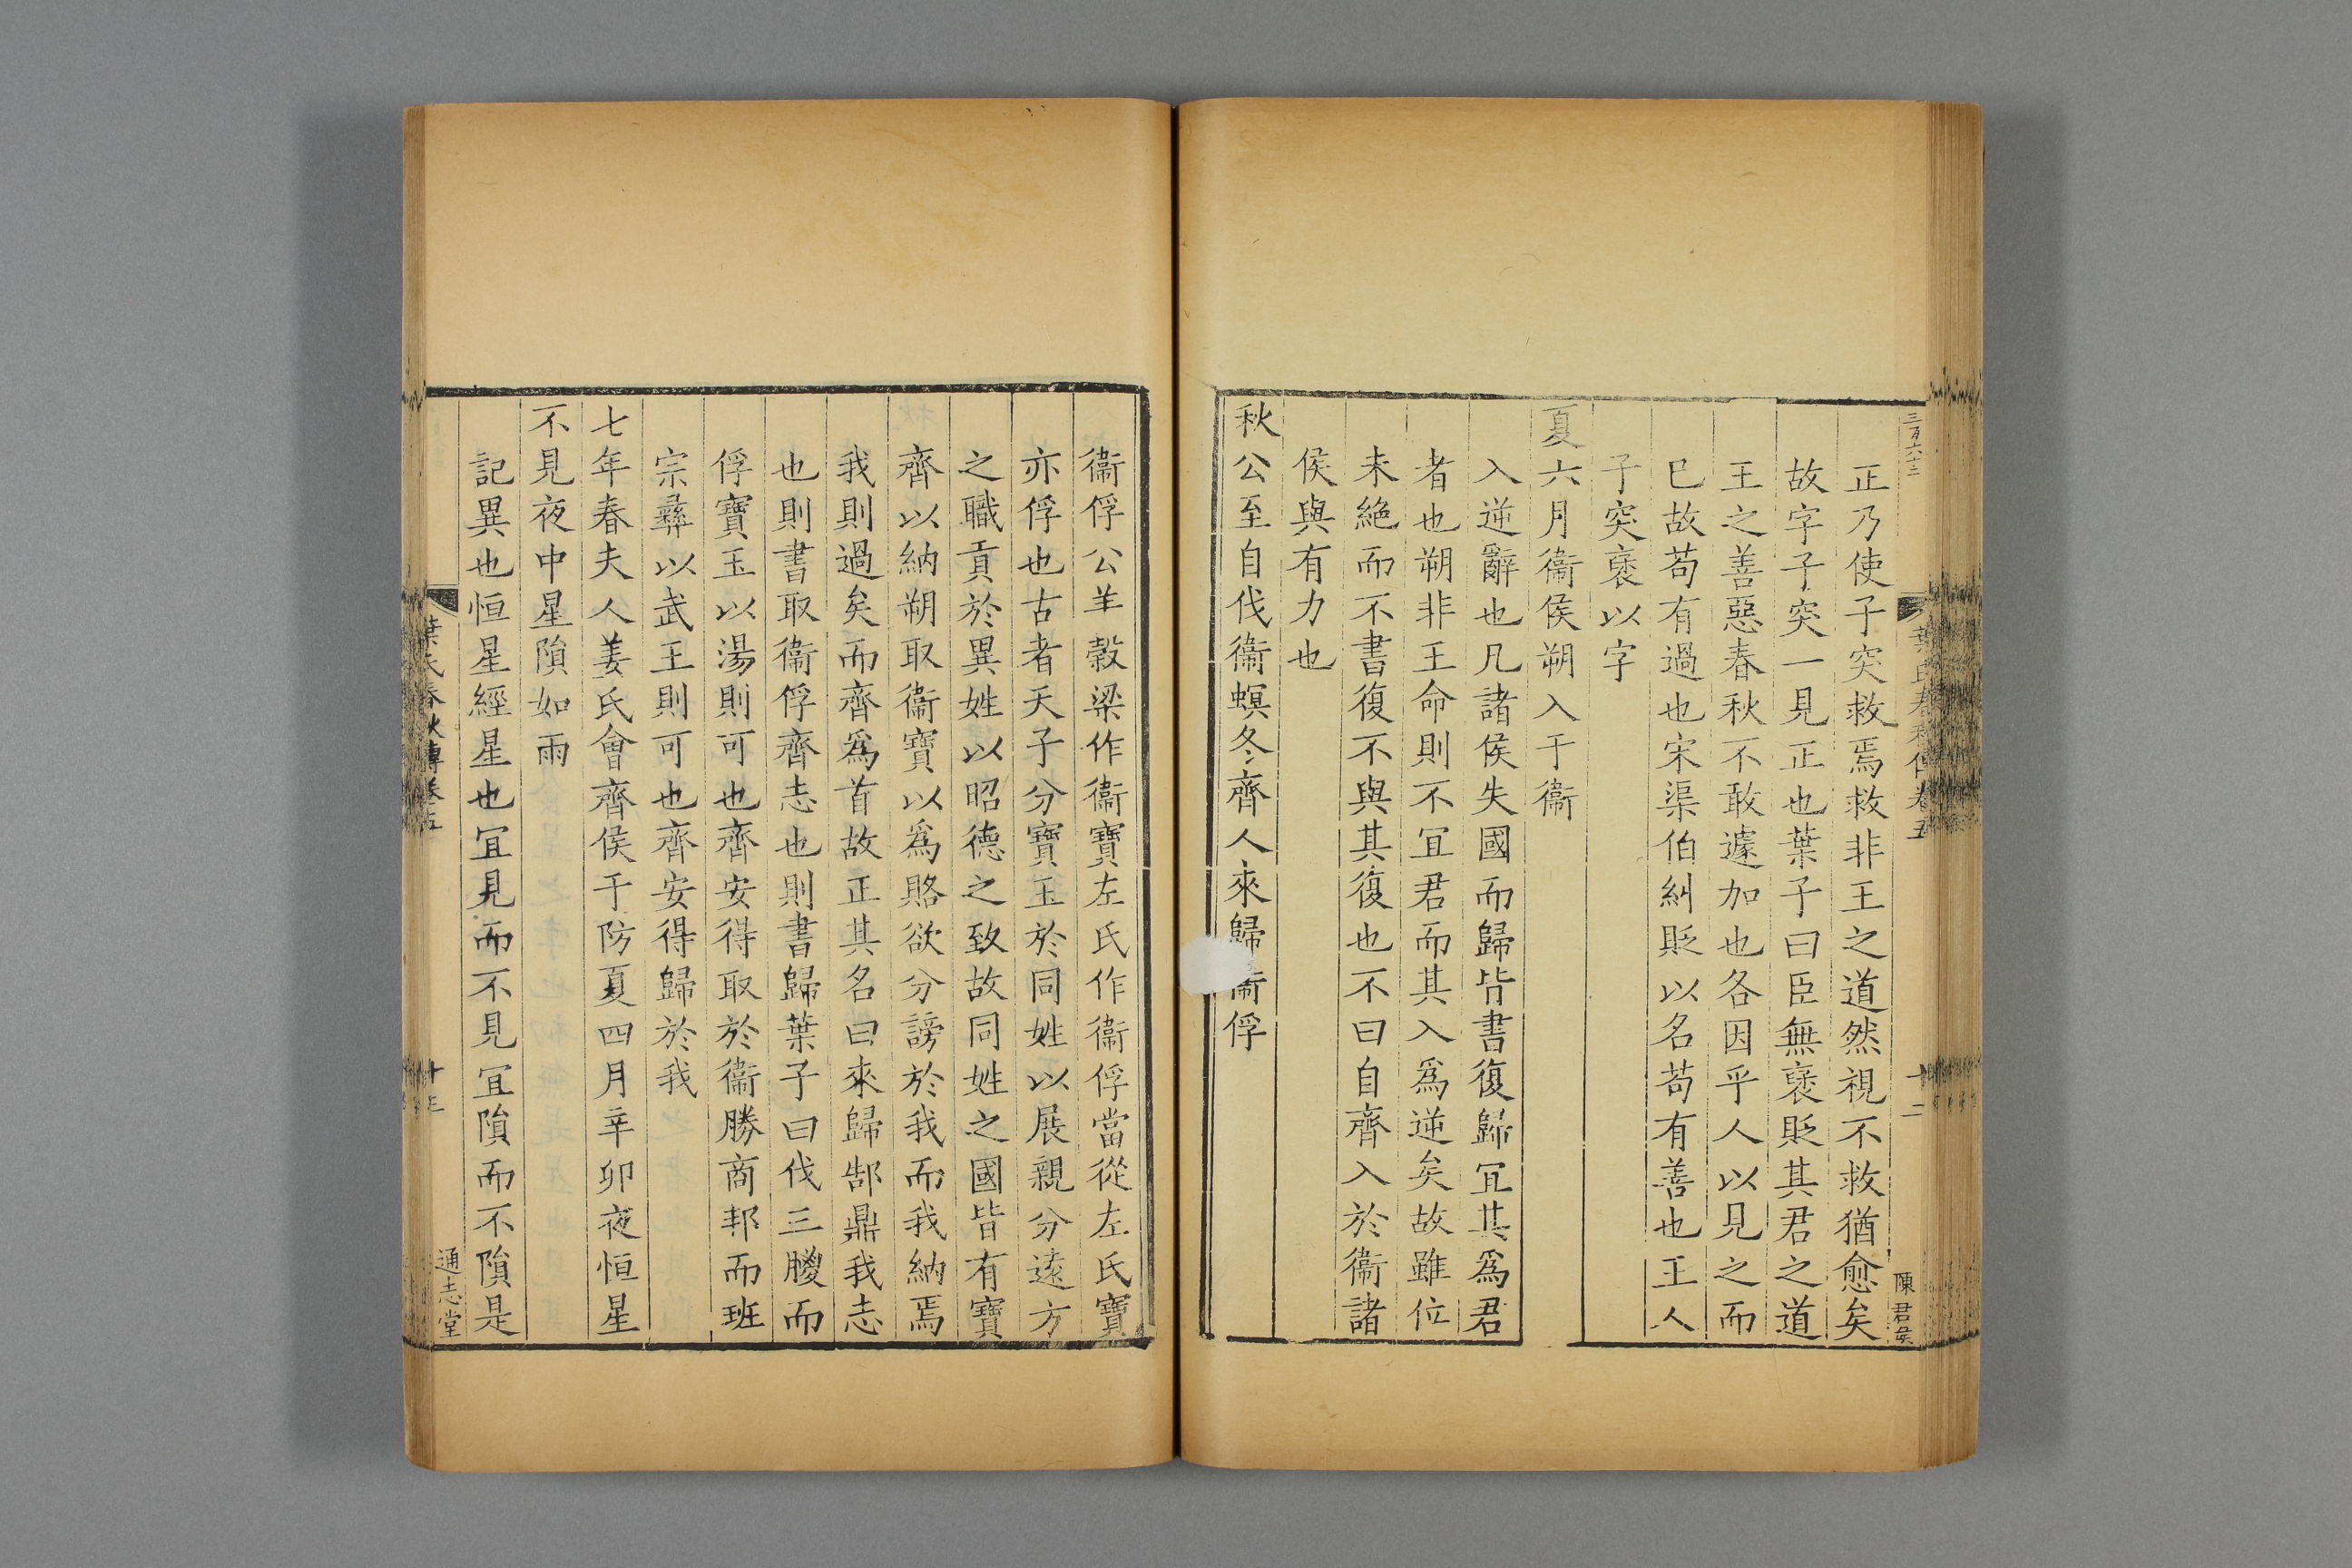 三百六十二
葉氏春秋傳卷五
十二
陳君侯
正乃使子突救焉救非王之道然視不救猶愈矣
故字子突一見正也葉子曰臣無襃貶其君之道
王之善惡春秋不敢遽加也各因乎人以見之而
巳故苟有過也宋渠伯糾貶以名苟有善也王人
子突襃以字
夏六月衞侯朔入于衞
入逆辭也凡諸侯失國而歸皆書復歸冝其爲君
者也朔非王命則不冝君而其入爲逆矣故雖位
未絶而不書復不與其復也不曰自齊入於衞諸
侯與有力也
秋公至自伐衞螟冬齊人來歸衞俘
衞俘公羊榖梁作衞寶左氏作衞俘當從左氏寶
亦俘也古者天子分寶玉於同姓以展親分遠方
之職貢於異姓以昭德之致故同姓之國皆有寶
齊以納朔取衞寶以爲賂欲分謗於我而我納焉
我則過矣而齊爲首故正其名曰來歸郜鼎我志
也則書取衞俘齊志也則書歸葉子曰伐三朡而
俘寶玉以湯則可也齊安得取於衞勝商邦而班
宗彝以武王則可也齊安得歸於我
七年春夫人姜氏會齊侯于防夏四月辛卯夜恒星
不見夜中星隕如雨
記異也恒星經星也冝見而不見冝隕而不隕是
葉氏春秋傳卷五
十三
通志堂